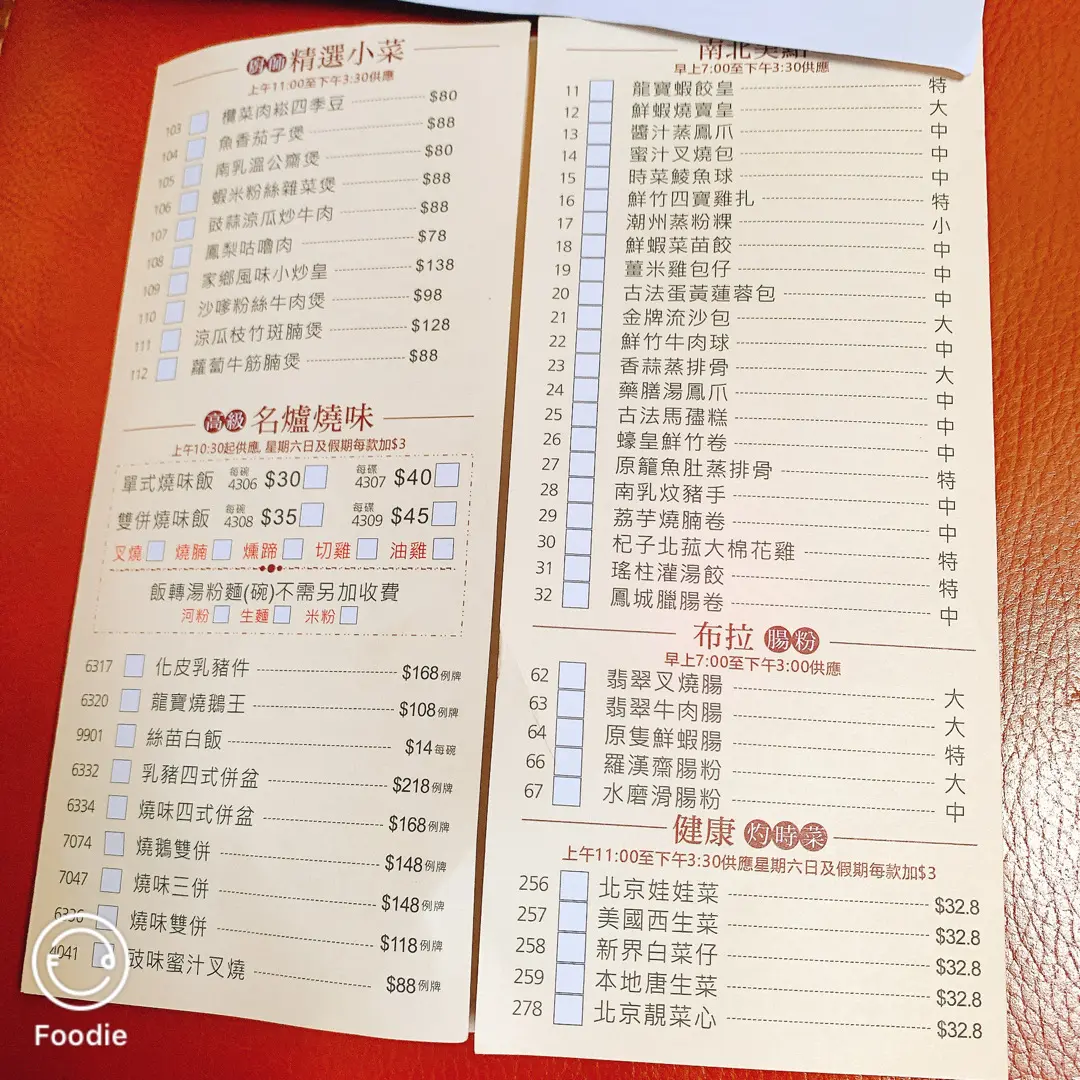 廚師 精選小菜
上午11:00至下午3:30供應
103 欖菜肉崧四季豆 $80
104 魚香茄子煲 $88
105 南乳溫公齋煲 $80
106 蝦米粉絲雜菜煲 $88
107 豉蒜涼瓜炒牛肉 $88
108 鳳梨咕嚕肉 $78
109 家鄉風味小炒皇 $138
110 沙嗲粉絲牛肉煲 $98
111 涼瓜枝竹斑腩煲 $128
112 蘿蔔牛筋腩煲 $88
高級 名爐燒味
上午10:30起供應, 星期六日及假期每款加$3
單式燒味飯 每碗 4306 $30 每碟 4307 $40
雙併燒味飯 每碗 4308 $35 每碟 4309 $45
叉燒 燒腩 燻蹄 切雞 油雞
飯轉湯粉麵(碗)不需另加收費
河粉 生麵 米粉
6317 化皮乳豬件 $168例牌
6320 龍寶燒鵝王 $108例牌
9901 絲苗白飯 $14每碗
6332 乳豬四式併盆 $218例牌
6334 燒味四式併盆 $168例牌
7074 燒鵝雙併 $148例牌
7047 燒味三併 $148例牌
6336 燒味雙併 $118例牌
4041 豉味蜜汁叉燒 $88例牌
南北美點
早上7:00至下午3:30供應
11 龍寶蝦餃皇 特
12 鮮蝦燒賣皇 大
13 醬汁蒸鳳爪 中
14 蜜汁叉燒包 中
15 時菜鯪魚球 中
16 鮮竹四寶雞扎 特
17 潮州蒸粉粿 小
18 鮮蝦菜苗餃 中
19 薑米雞包仔 中
20 古法蛋黃蓮蓉包 中
21 金牌流沙包 大
22 鮮竹牛肉球 中
23 香蒜蒸排骨 大
24 藥膳湯鳳爪 中
25 古法馬孻糕 中
26 蠔皇鮮竹卷 中
27 原籠魚肚蒸排骨 特
28 南乳炆豬手 中
29 荔芋燒腩卷 中
30 杞子北菰大棉花雞 特
31 瑤柱灌湯餃 特
32 鳳城臘腸卷 中
布拉 腸粉
早上7:00至下午3:00供應
62 翡翠叉燒腸 大
63 翡翠牛肉腸 大
64 原隻鮮蝦腸 特
66 羅漢齋腸粉 大
67 水磨滑腸粉 中
健康 灼時菜
上午11:00至下午3:30供應星期六日及假期每款加$3
256 北京娃娃菜 $32.8
257 美國西生菜 $32.8
258 新界白菜仔 $32.8
259 本地唐生菜 $32.8
278 北京靚菜心 $32.8
Foodie